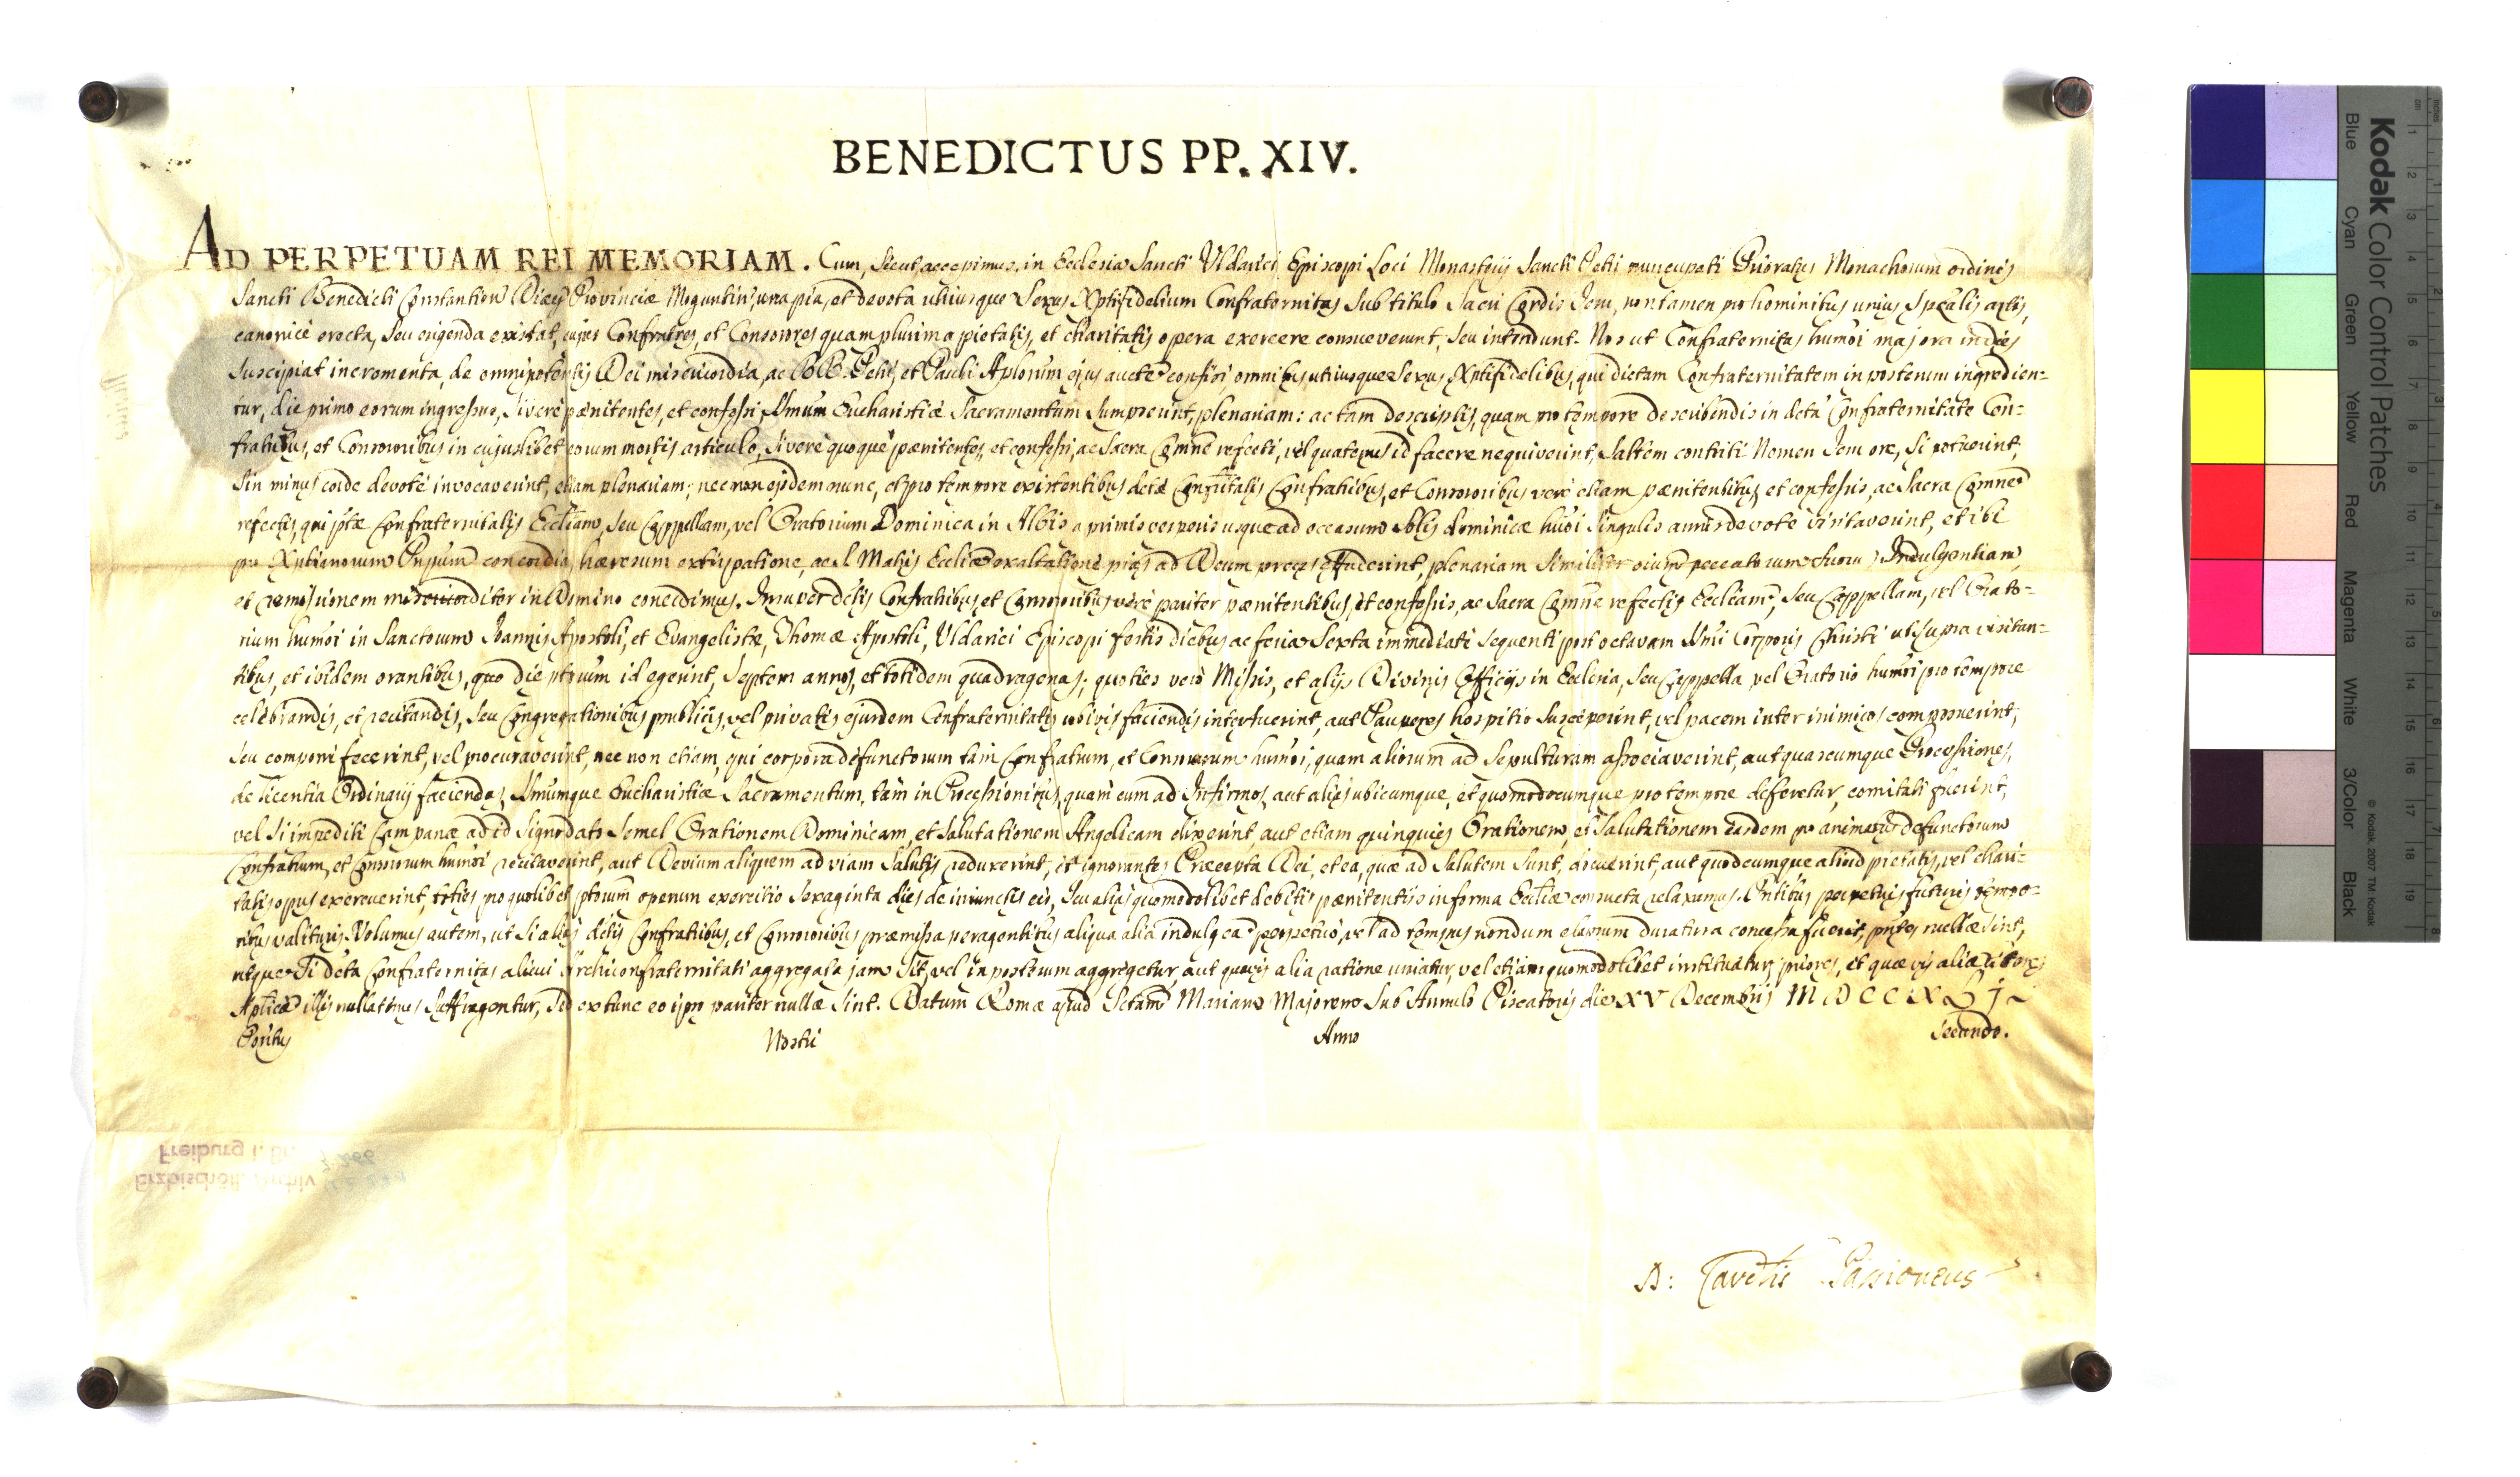 BENEDICTUS PP. XIV.
AD PERPETUAM REI MEMORIAM. Cum, sicut accepimus, in Ecclesia Sancti Uldarici Episcopi Loci Monasterij Sancti Petri nuncupati Prioratus Monachorum ordinis
Sancti Benedicti Constantien Diaecs Provinciae Moguntin, una pia, et devota utriusque Sexus Xptifidelium Confraternitas Sub titulo Sacri Cordis Jesu, non tamen pro hominibus unius Spealis artis,
canonicè erecta, seu erigenda existat, cujus Confratres, et Consorores quamplurima pietatis, et charitatis opera exercere consueverunt, seu intendunt. Nos ut Confraternitas humoi majora indies
Suscipiat incrementa, de omnipotentis Dei misericordia, ac BB. Petri, et Pauli Aplorum ejus aucte confisi omnibus utriusque Sexus Xptifidelibus, qui dictam Confraternitatem in posterum ingredien-
tur, die primo eorum ingressus, si verè paenitentes, et confessi Smum Eucharistiae Sacramentum Sumpserint, plenariam: ac tam descriptis, quam pro tempore describendis in dcta Confraternitate Con-
fratribus, et Consororibus in cujuslibet eorum mortis articulo, si verè quoque paenitentes, et confessi, ac Sacra Comne refecti, vel quatenus id facere nequiverint, Saltem contriti Nomen Jesu ore, Si potuerint,
Sin minus corde devotè invocaverint, etiam plenariam; nec non ejsdem nunc, et pro tempore existentibus dctae Confrnitatis Confratribus, et Consororibus verè etiam paenitentibus, et confessis, ac Sacra Comne
refectis, qui pftae Confraternitatis Eccliam, seu Cappellam, vel Oratorium Dominica in Albis a primis vesperis usque ad occasum Solis dominicae humoi Singulis annis devotè visitaverint, et ibi
pro Xptianorum Prpum concordia, haeresum extirpatione, ac S. Matris Eccliae exaltatione pias ad Deum preces effuderint, plenariam Similiter oium peccatorum suorum Indulgentiam,
et remissionem misericorditer in Domino concedimus. Insuper dctis Confratribus, et Consororibus verè pariter paenitentibus, et confessis, ac Sacra Comne refectis Eccliam, seu Cappellam, vel Orato-
rium humoi in Sanctorum Joannis Apostoli, et Evangelistae, Thomae Apostoli, Uldarici Episcopi festis diebus ac feria Sexta immediatè Sequenti post octavam Smi Corporis Christi ut supra visitan-
tibus, et ibidem orantibus, quo die pftorum id egerint, Septem annos, et totidem quadragenas; quoties verò Missis, et alijs Divinis Officijs in Ecclesia, seu Cappella vel Oratorio humoi pro tempore
celebrandis, et recitandis, seu Congregationibus publicis, vel privatis ejusdem Confraternitatis ubivis faciendis interfuerint, aut Pauperes hospitio Susceperint, vel pacem inter inimicos composuerint,
seu componi fecerint, vel procuraverint, nec non etiam, qui corpora defunctorum tam Confratrum, et Consororum humoi, quam aliorum ad Sepulturam associaverint, aut quascumque Processiones,
de licentia Ordinarij faciendas, Smumque Eucharistiae Sacramentum, tam in Processionibus, quam cum ad Infirmos, aut alias ubicumque, et quomodocumque pro tempore deferetur, comitati fuerint,
vel si impediti Campanae ad id Signo dato Semel Orationem Dominicam, et Salutationem Angelicam dixerint aut etiam quinquies Orationem, et Salutationem easdem pro animabus defunctorum
Confratrum, et Consororum humoi recitaverint, aut Devium aliquem ad viam Salutis reduxerint, et ignorantes Praecepta Dei, et ea, quae ad Salutem Sunt, docuerint, aut quodcumque aliud pietatis, vel chari-
tatis opus exercuerint, toties pro quolibet pftorum operum exercitio Sexaginta dies de iniunctis eis, seu alias quomodolibet debitis paenitentiis in forma Eccliae consueta relaxamus. Pntibus perpetuis futuris tempo-
ribus valituris. Volumus autem, ut si alias dctis Confratribus, et Consororibus praemissa peragentibus aliqua alia indulgea perpetuò, vel ad tempus nondum elapsum duratura concessa fuerit, pntes nullae sint,
utque si dcta Confraternitas alicui Archiconfraternitati aggregata jam sit, vel in posterum aggregetur aut quavis alia ratione uniatur, vel etiam quomodolibet instituatur, priores, et quaevis aliae litterae
Aplicae illis nullatenus Suffragentur, sed ex tunc eo ipso pariter nullae sint. Datum Romae apud Sctam Mariam Majorem Sub Annulo Piscatoris die XV Decembris MDCCXLI
Pontus Nostri Anno Secundo.
D: Cardlis Passioneus
Erzbischöfl. Archiv
Freiburg i. Br.
Kodak Color Control Patches
Blue Cyan Green Yellow Red Magenta White 3/Color Black
© Kodak, 2007 TM: Kodak
cm 1 2 3 4 5 6 7 8 9 10 11 12 13 14 15 16 17 18 19
inches 1 2 3 4 5 6 7 8